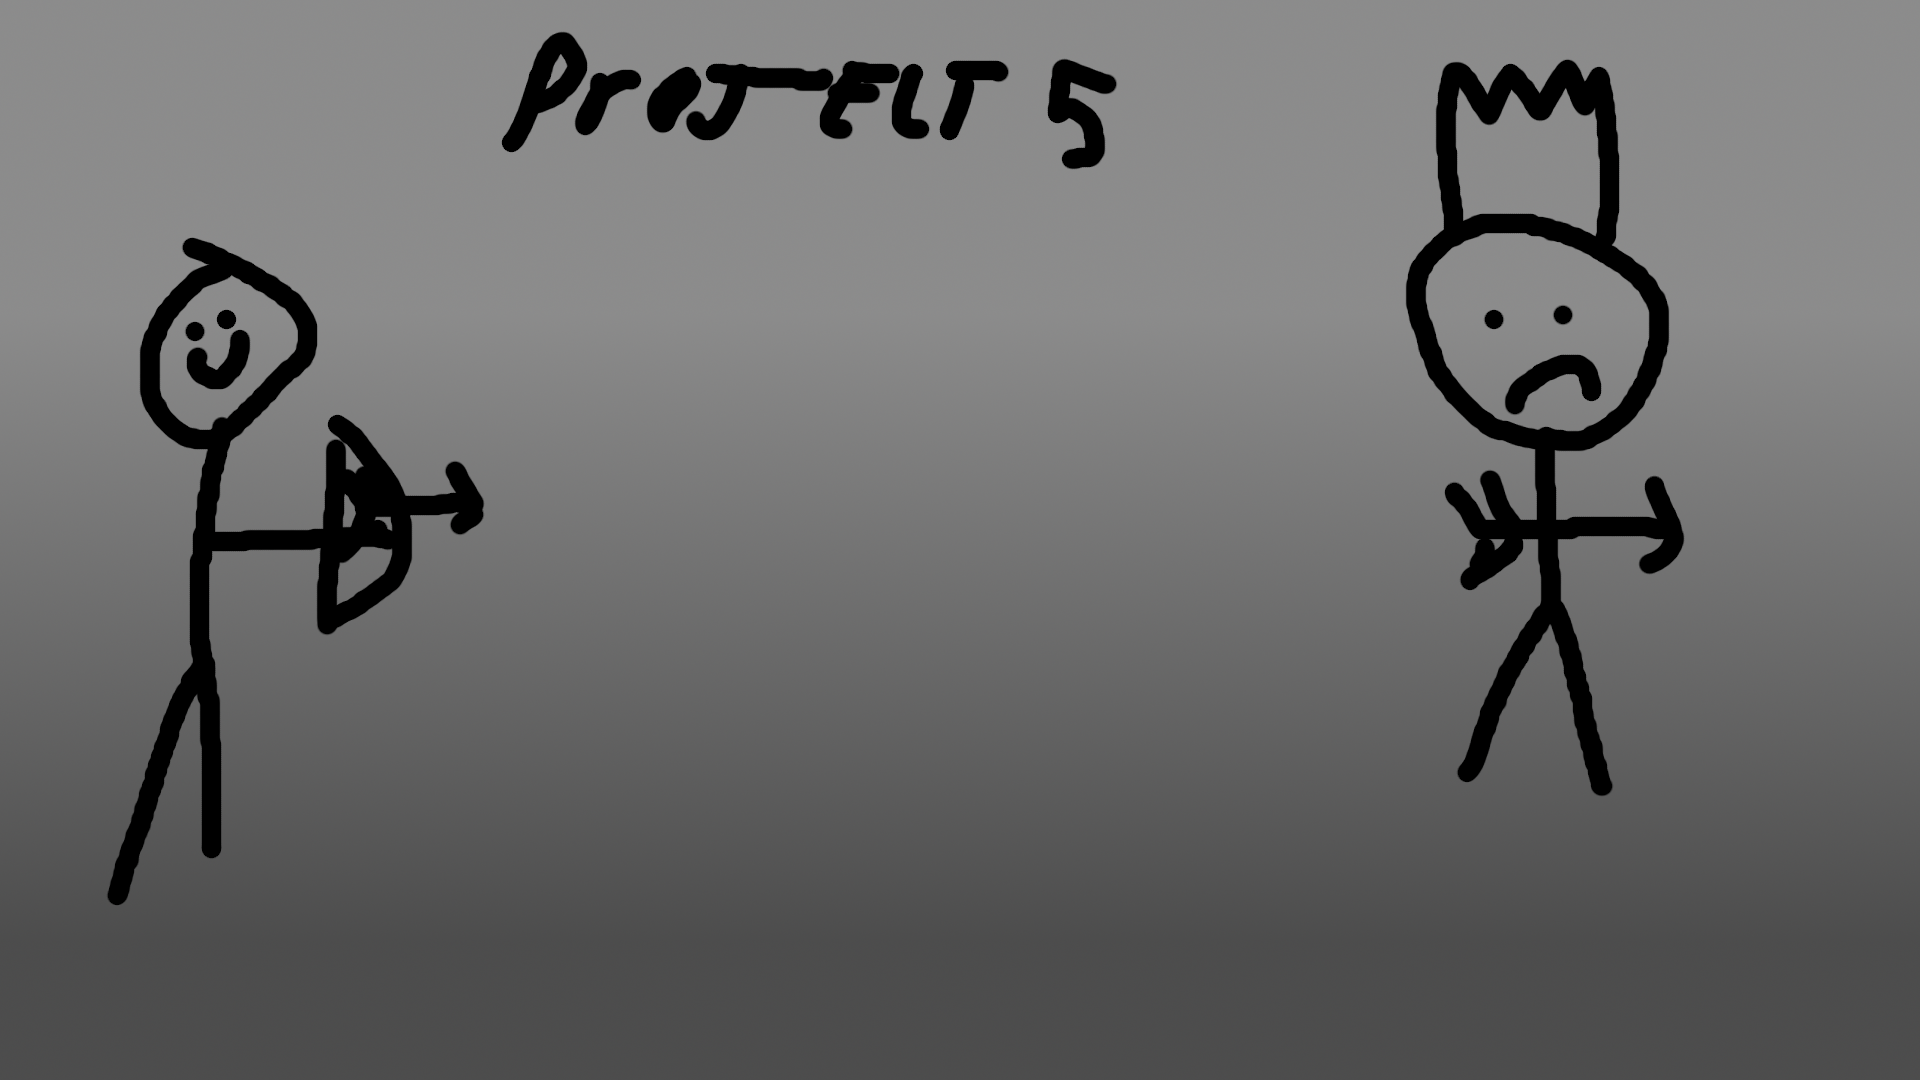 ProJECT 5